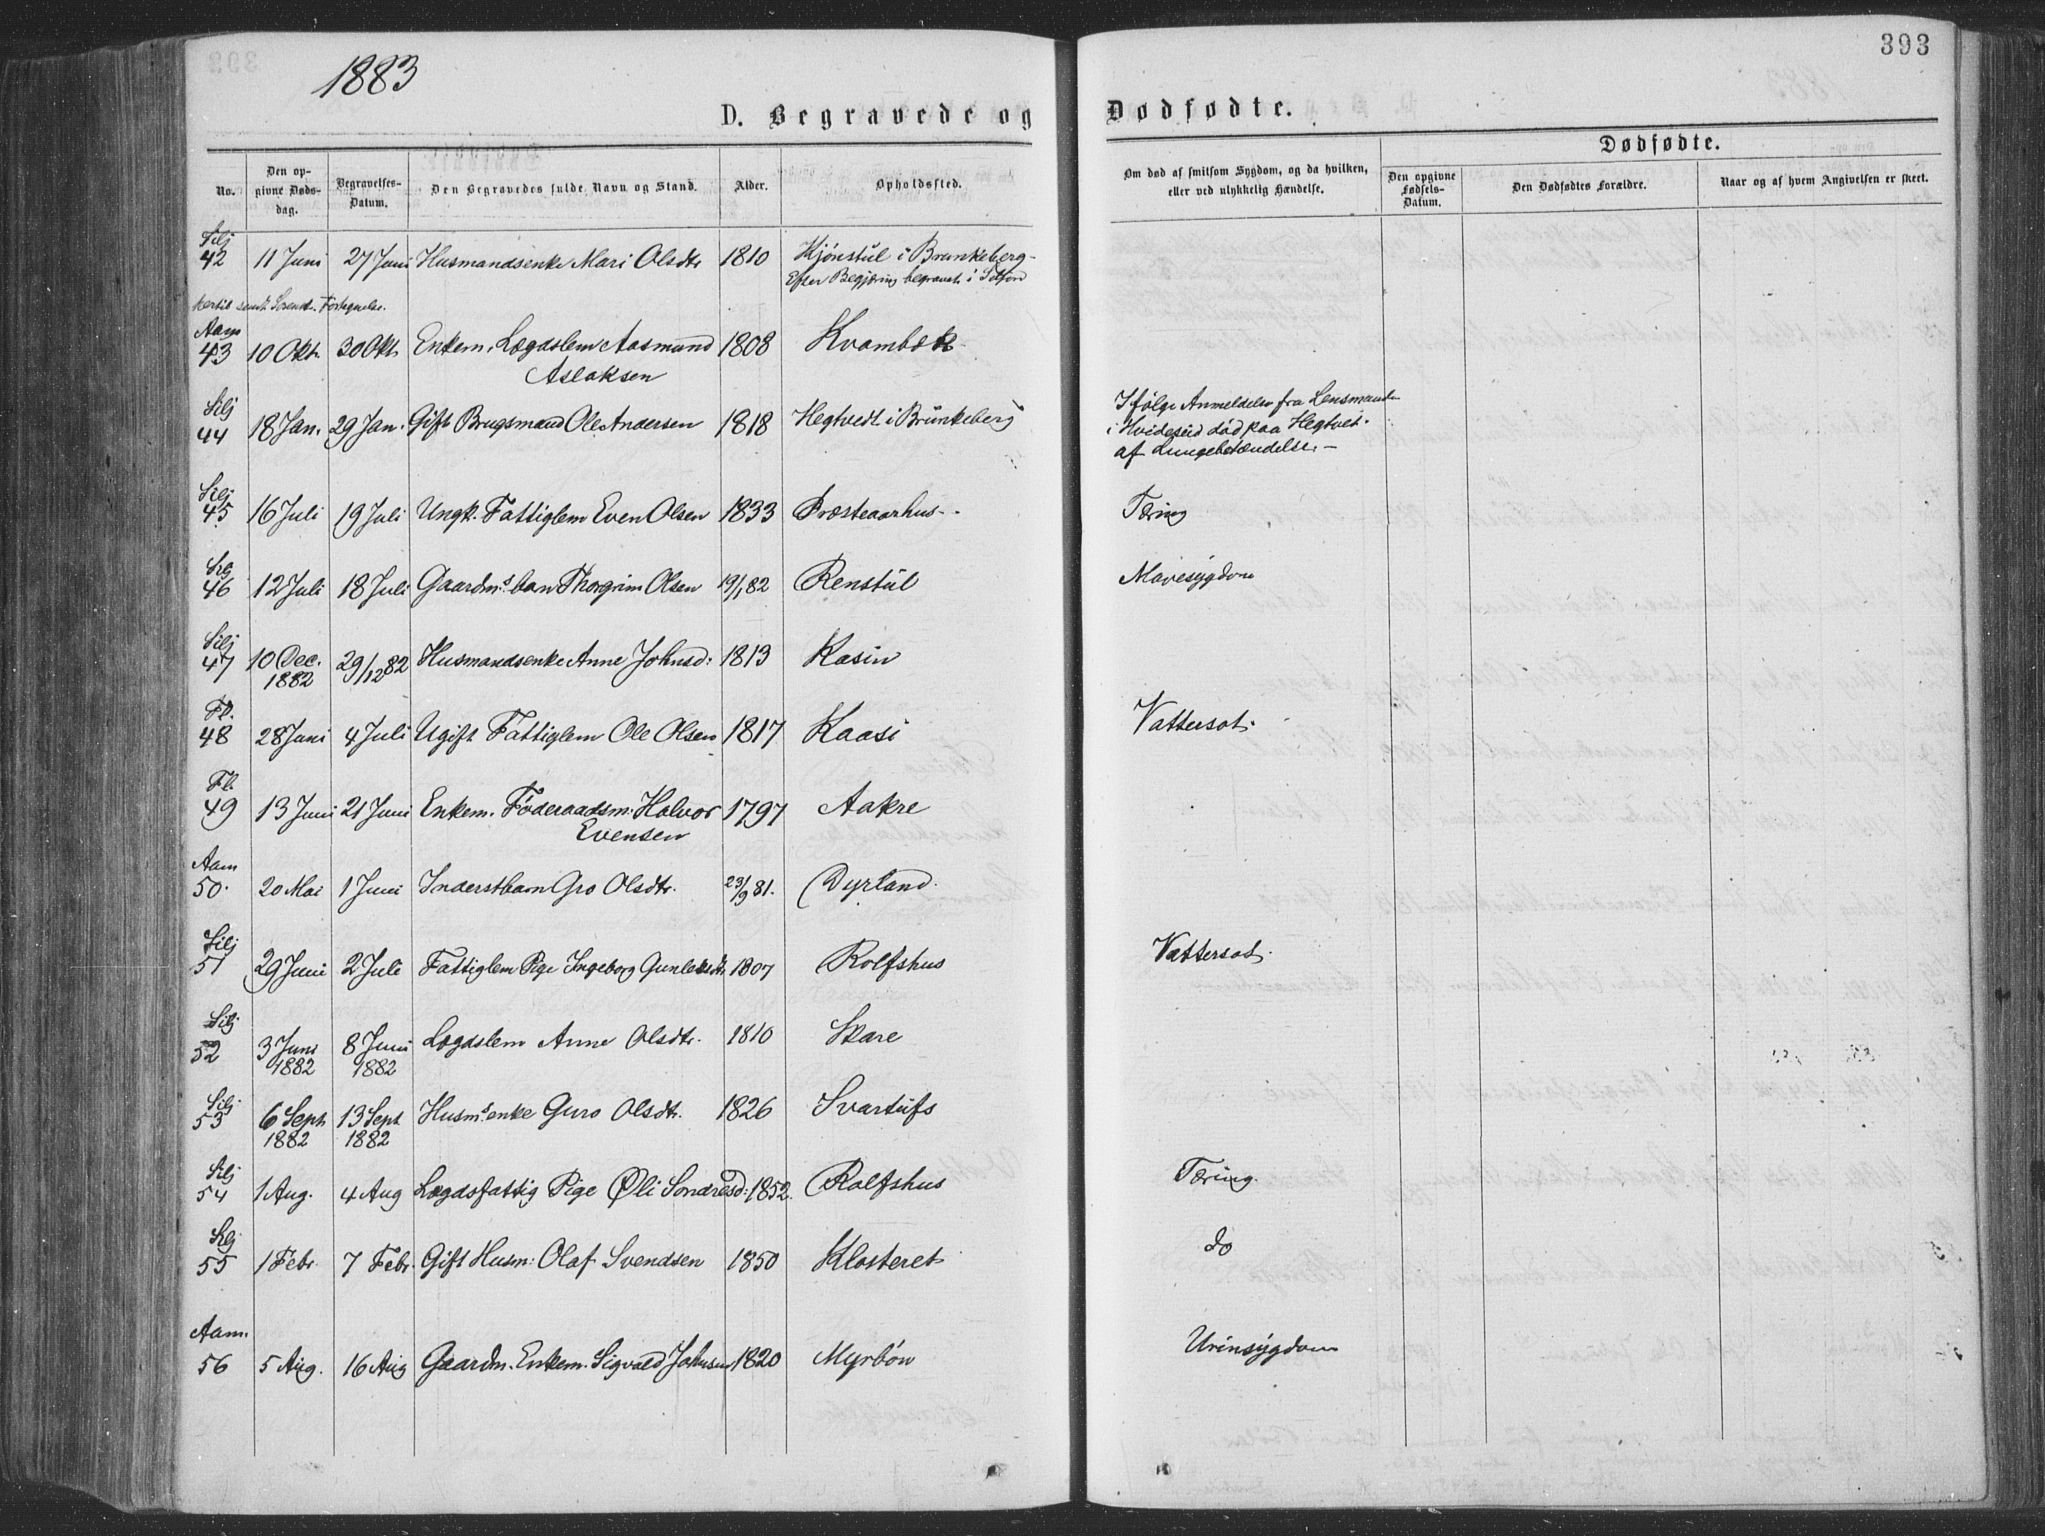 393
1883
D. Begravede og Dødfødte.
Dødfødte.
No. Den opgivne Dødsdag. Begravelses-Datum. Den Begravedes fulde Navn og Stand. Alder. Opholdssted. Om død af smitsom Sygdom, og da hvilken, eller ved ulykkelig Hændelse. Den opgivne Fødsels-Datum. Den Dødfødtes Forældre. Naar og af hvem Angivelsen er skeet.
Silj
42 11 Juni 27 Juni Husmandsenke Mari Olsdtr 1810 Kjønstul i Brunkeberg-
Efter Begjæring begravet i
Fortegnelse.
Aam
43 10 Okt. 30 Okt. Enkem. Lægdslem Aasmund 1808 Kvambæk
Aslaksen
Silj
44 18 Jan. 29 Jan. Gift Brugsmand Ole Andersen 1818 Hegtvedt i Brunkeberg
Ifølge Anmeldelse fra Lensmanden
i Hvideseid død paa Hegtvet.
af Lungebetændelse.-
Silj
45 16 Juli 19 Juli Ungk. Fattiglem Even Olsen 1833 Præsteaarhus- Tæring
Silj
46 12 Juli 18 Juli Gaardms. barn Thorgrim Olsen 19/1 82 Renstul Mavesygdom
Silj
47 10 Dec. 29/12 82 Husmandsenke Anne Johnsd: 1813 Kasin
1882
Fl.
48 28 Juni 4 Juli Ugift Fattiglem Ole Olsen 1817 Kaasi Vattersot.
Fl.
49 13 Juni 21 Juni Enkem. Føderaadsm. Halvor 1797 Aakre
Evensen
Aam
50. 20 Mai 1 Juni Inderstbarn Gro Olsdtr. 23/9 81. Dyrland.
Silj
51 29 Juni 2 Juli Fattiglem Pige Ingeborg Gunleksdtr 1807 Rolfshus Vattersot.
Silj
52 3 Juni 8 Juni Lægdslem Anne Olsdtr. 1810 Skare
1882 1882
Silj
53 6 Sept 13 Sept Husms. enke Guro Olsdtr. 1826 Svartufs
1882 1882
Silj
54 1 Aug. 4 Aug Lægdsfattig Pige Øli Sondresd: 1852. Rolfshus Tæring.
Silj
55 1 Febr. 7 Febr. Gift Husm: Olaf Svendsen 1850 Klosteret do
Aam.
56 5 Aug. 16 Aug Gaardm. Enkem. Sigvald Johnsen 1820 Myrbøn Urinsygdom